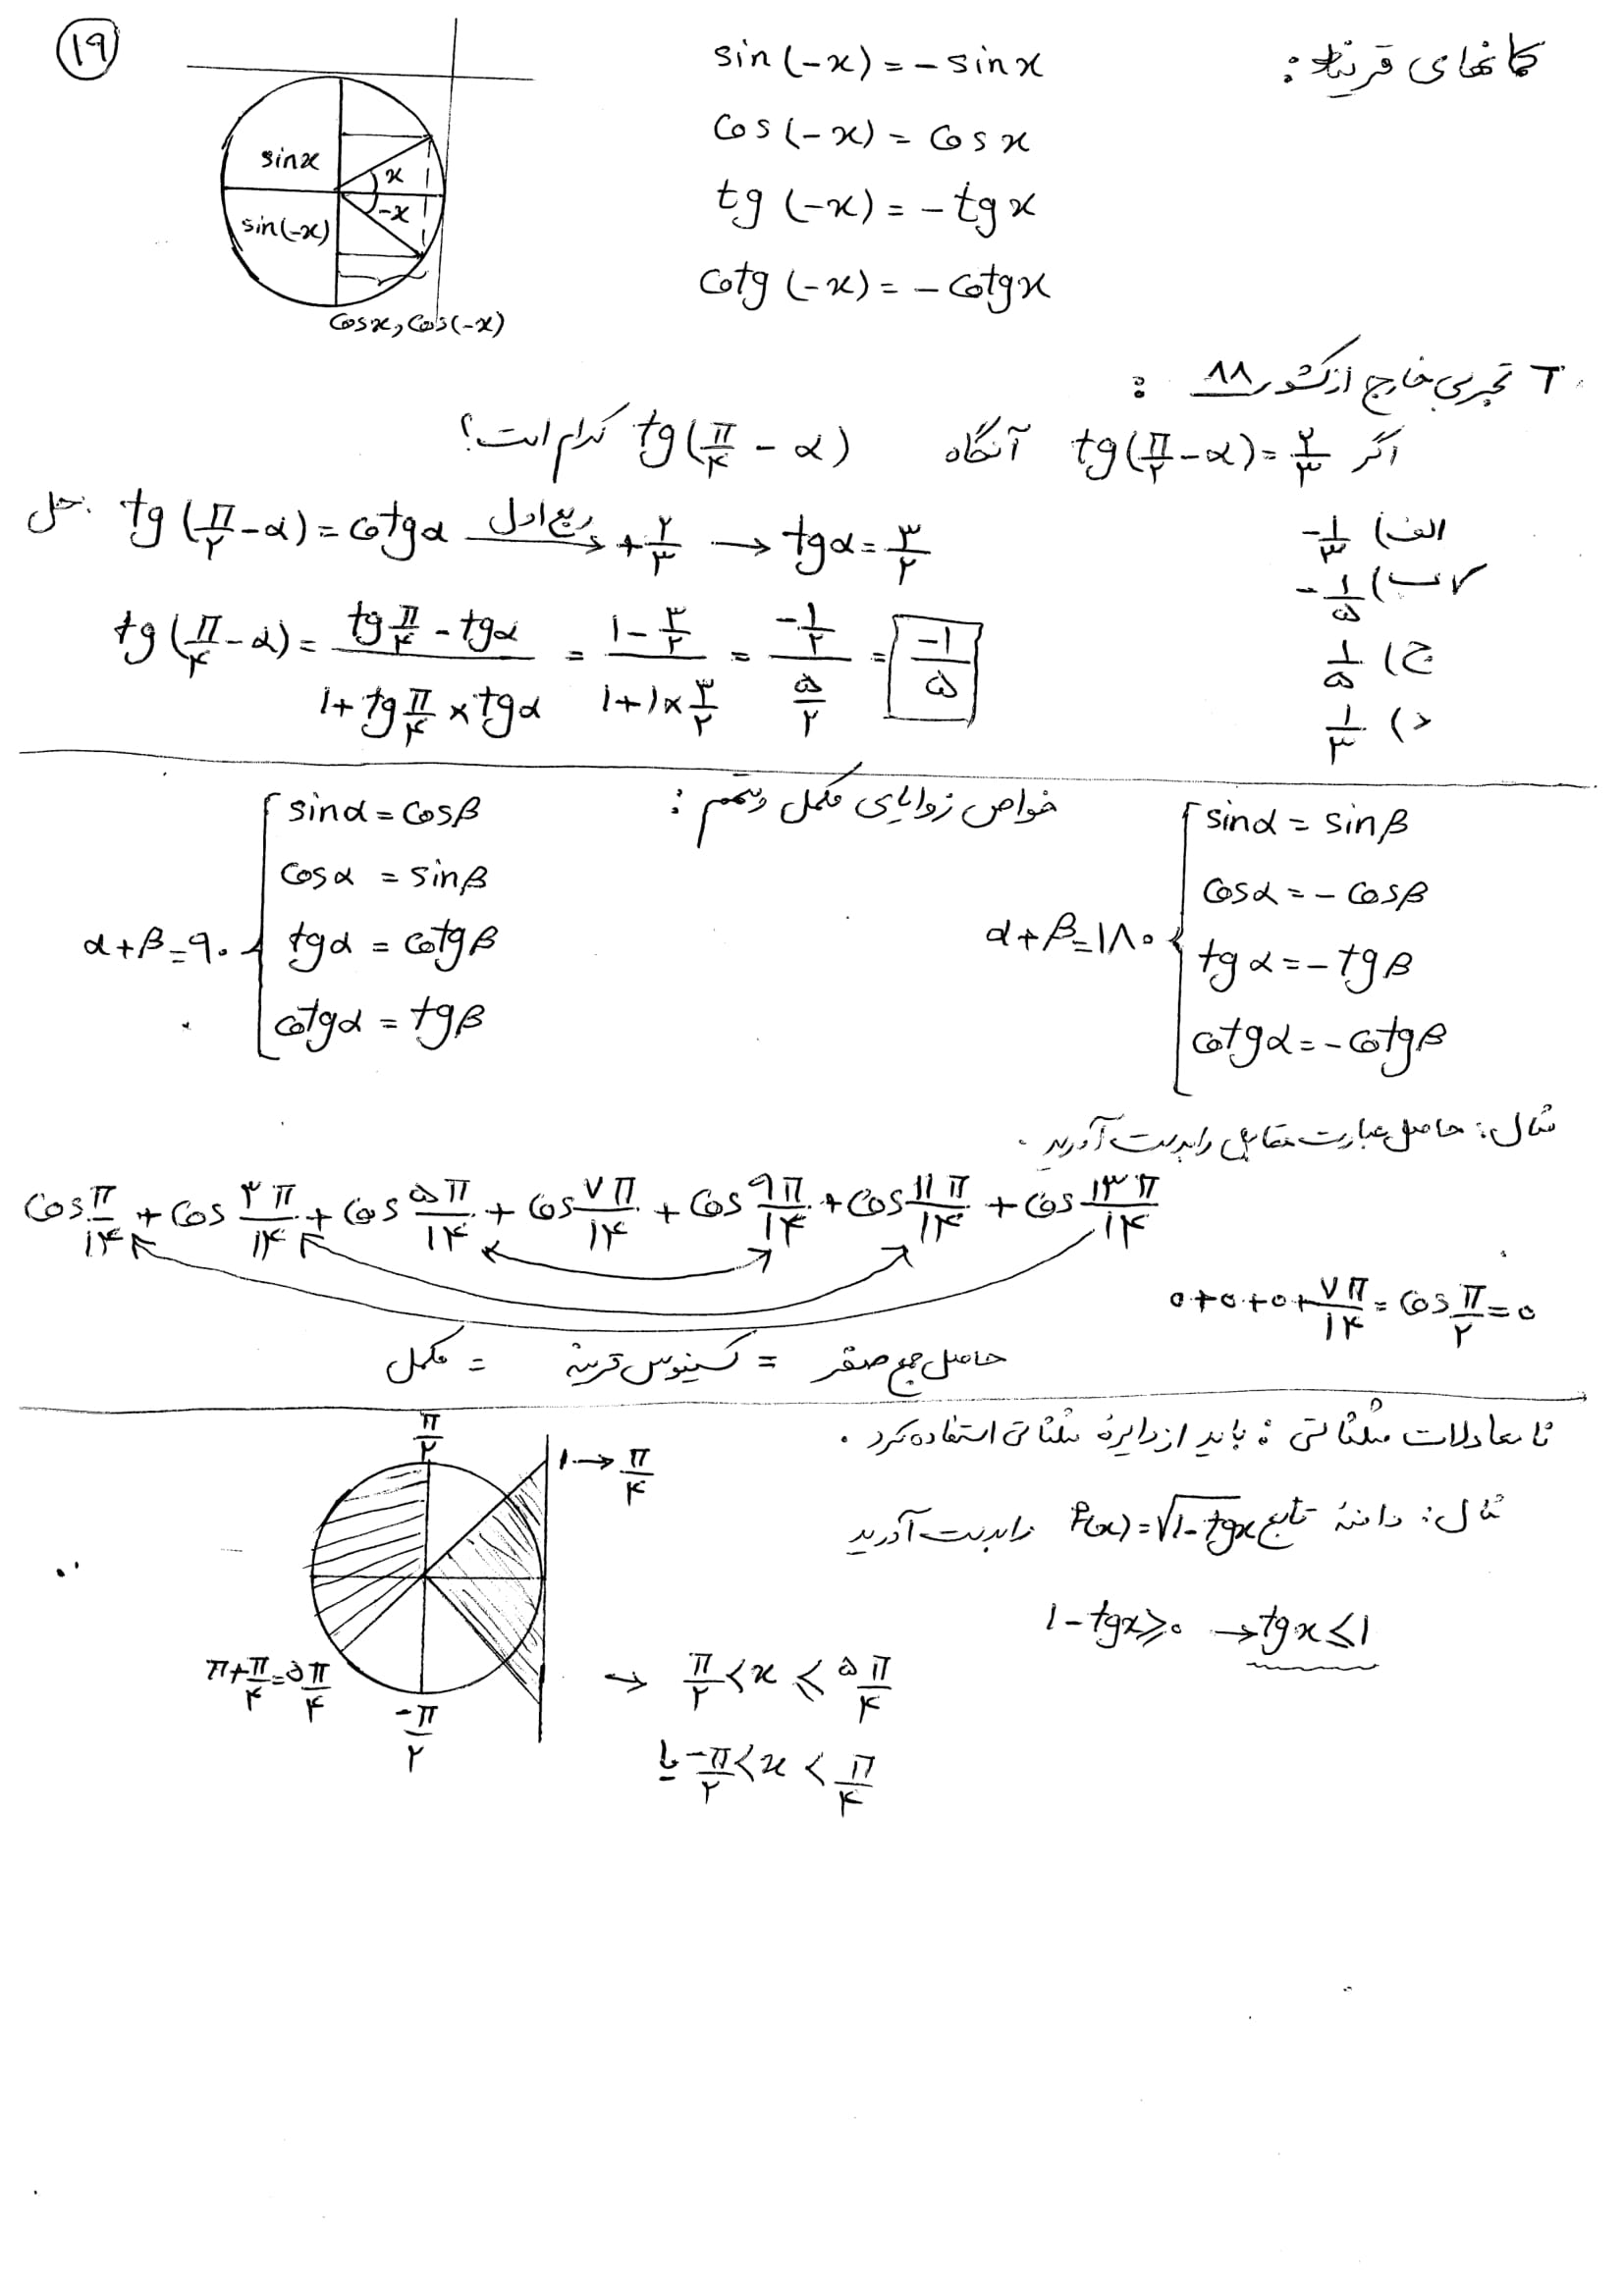 ۱۹
کمانهای قرینه :
sin(-x) = - sinx
cos(-x) = cosx
tg(-x) = - tgx
cotg(-x) = - cotgx
sinx
x
-x
sin(-x)
cosx, cos(-x)
T تجربی خارج از کشور ۸۸ :
اگر tg(π/۲ - α) = ۲/۳ آنگاه tg(π/۴ - α) کدام است؟
الف) -۱/۳
ب) -۱/۵
ج) ۱/۵
د) ۱/۳
حل: tg(π/۲ - α) = cotgα ربع اول → +۲/۳ → tgα = ۳/۲
tg(π/۴ - α) = (tg π/۴ - tgα)/(۱ + tg π/۴ × tgα) = (۱ - ۳/۲)/(۱ + ۱×۳/۲) = (-۱/۲)/(۵/۲) = -۱/۵
خواص زوایای مکمل و متمم :
α+β=۱۸۰
sinα = sinβ
cosα = - cosβ
tgα = - tgβ
cotgα = - cotgβ
α+β=۹۰
sinα = cosβ
cosα = sinβ
tgα = cotgβ
cotgα = tgβ
مثال: حاصل عبارت مقابل را بدست آورید.
cos π/۱۴ + cos ۳π/۱۴ + cos ۵π/۱۴ + cos ۷π/۱۴ + cos ۹π/۱۴ + cos ۱۱π/۱۴ + cos ۱۳π/۱۴
۰+۰+۰+ ۷π/۱۴ = cos π/۲ = ۰
حاصل جمع صفر = کسینوس قرینه = مکمل
نامعادلات مثلثاتی : باید از دایرهٔ مثلثاتی استفاده کرد .
مثال: دامنهٔ تابع f(x) = √(۱-tgx) را بدست آورید
۱ - tgx ⩾ ۰ → tgx ⩽ ۱
π/۲
۱ → π/۴
π + π/۴ = ۵π/۴
-π/۲
→ π/۲ < x ⩽ ۵π/۴
یا -π/۲ < x < π/۴